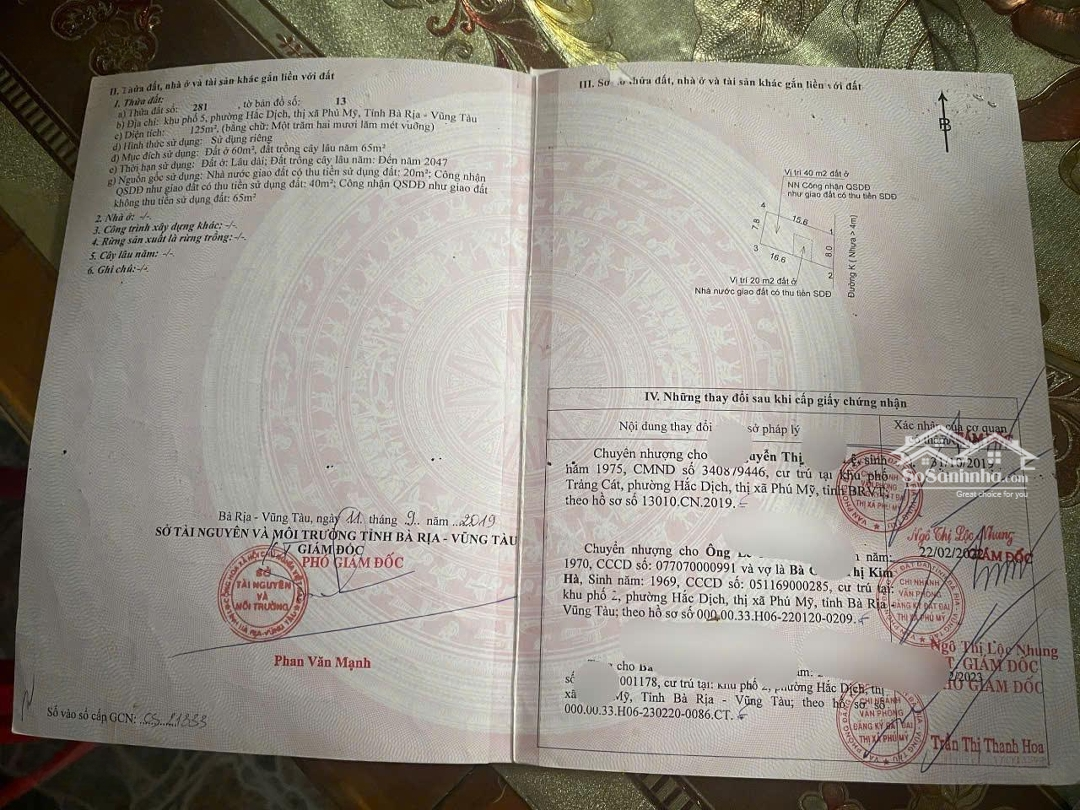 II. Thửa đất, nhà ở và tài sản khác gắn liền với đất
1. Thửa đất:
a) Thửa đất số: 281 , tờ bản đồ số: 13
b) Địa chỉ: khu phố 5, phường Hắc Dịch, thị xã Phú Mỹ, Tỉnh Bà Rịa - Vũng Tàu
c) Diện tích: 125m², (bằng chữ: Một trăm hai mươi lăm mét vuông)
d) Hình thức sử dụng: Sử dụng riêng
đ) Mục đích sử dụng: Đất ở 60m², đất trồng cây lâu năm 65m²
e) Thời hạn sử dụng: Đất ở: Lâu dài; Đất trồng cây lâu năm: Đến năm 2047
g) Nguồn gốc sử dụng: Nhà nước giao đất có thu tiền sử dụng đất: 20m²; Công nhận
QSDĐ như giao đất có thu tiền sử dụng đất: 40m²; Công nhận QSDĐ như giao đất
không thu tiền sử dụng đất: 65m²
2. Nhà ở: -/-.
3. Công trình xây dựng khác: -/-.
4. Rừng sản xuất là rừng trồng: -/-.
5. Cây lâu năm: -/-.
6. Ghi chú: -/-.
Bà Rịa - Vũng Tàu, ngày 11 tháng 9 năm 2019
SỞ TÀI NGUYÊN VÀ MÔI TRƯỜNG TỈNH BÀ RỊA - VŨNG TÀU
GIÁM ĐỐC
PHÓ GIÁM ĐỐC
SỞ
TÀI NGUYÊN
VÀ
MÔI TRƯỜNG
Phan Văn Mạnh
Số vào sổ cấp GCN: CS 21333
III. Sơ thửa đất, nhà ở và tài sản khác gắn liền với đất
B
Vị trí 40 m2 đất ở
NN Công nhận QSDĐ
như giao đất có thu tiền SDĐ
4
15.6
1
7.8
8.0
3
16.6
2
Đường K ( Nhựa > 4m)
Vị trí 20 m2 đất ở
Nhà nước giao đất có thu tiền SDĐ
IV. Những thay đổi sau khi cấp giấy chứng nhận
Nội dung thay đổi sở pháp lý
Xác nhận của cơ quan
Chuyển nhượng cho Thị sinh
năm 1975, CMND số 340879446, cư trú tại khu phố
Trảng Cát, phường Hắc Dịch, thị xã Phú Mỹ, tỉnh BRVT;
theo hồ sơ số 13010.CN.2019.
31/10/2019
SoSanhnha.com
Great choice for you
Ngô Thị Lộc Nhung
Chuyển nhượng cho Ông năm:
1970, CCCD số: 077070000991 và vợ là Bà Thị Kim
Hà, Sinh năm: 1969, CCCD số: 051169000285, cư trú tại:
khu phố 2, phường Hắc Dịch, thị xã Phú Mỹ, tỉnh Bà Rịa -
Vũng Tàu; theo hồ sơ số 000.00.33.H06-220120-0209.
GIÁM ĐỐC
CHI NHÁNH
VĂN PHÒNG
ĐĂNG KÝ ĐẤT ĐAI
THỊ XÃ PHÚ MỸ
Ngô Thị Lộc Nhung
cho Bà
số 001178, cư trú tại: khu phố 2, phường Hắc Dịch, thị
xã Mỹ, Tỉnh Bà Rịa - Vũng Tàu; theo hồ sơ số
000.00.33.H06-230220-0086.CT.
GIÁM ĐỐC
PHÓ GIÁM ĐỐC
CHI NHÁNH
VĂN PHÒNG
ĐĂNG KÝ ĐẤT ĐAI
THỊ XÃ PHÚ MỸ
Trần Thị Thanh Hoa